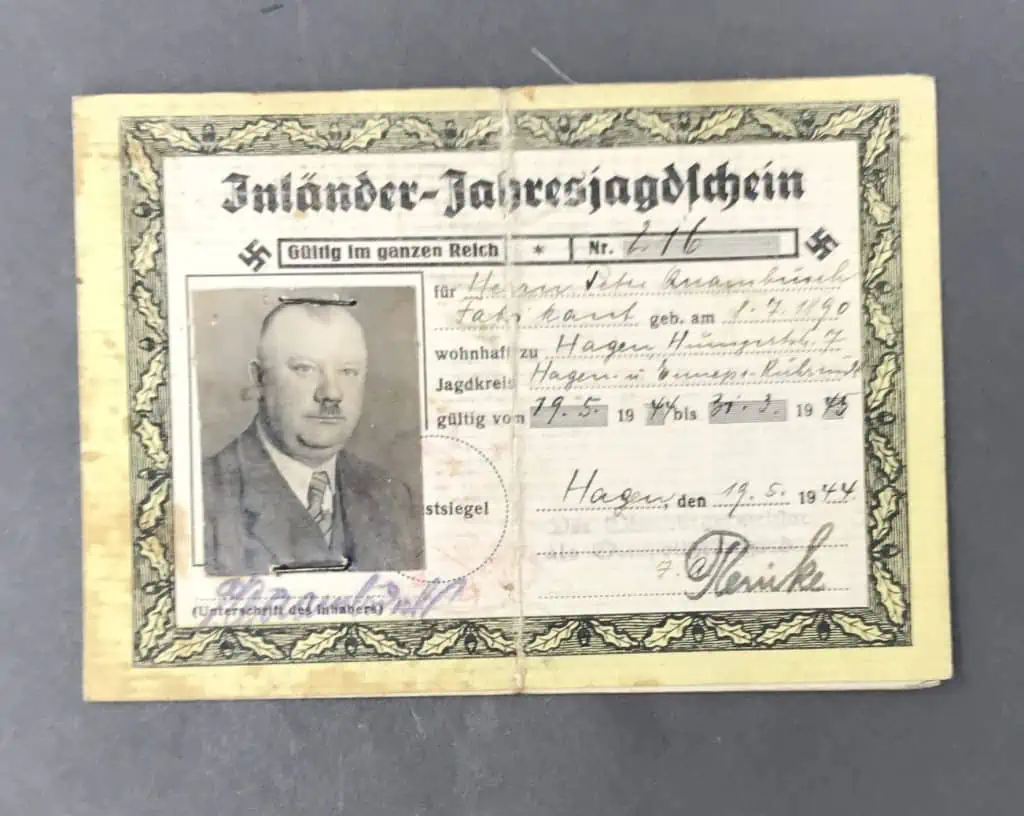 Inländer-Jahresjagdschein
Gültig im ganzen Reich * Nr. 216
für Herrn Peter Quambusch
Fabrikant geb. am 8.7.1890
wohnhaft zu Hagen, 7
Jagdkreis Hagen u. Ennepe-Ruhr
gültig vom 19.5. 1944 bis 31.3. 1945
stsiegel
Hagen, den 19.5. 1944
(Unterschrift des Inhabers)